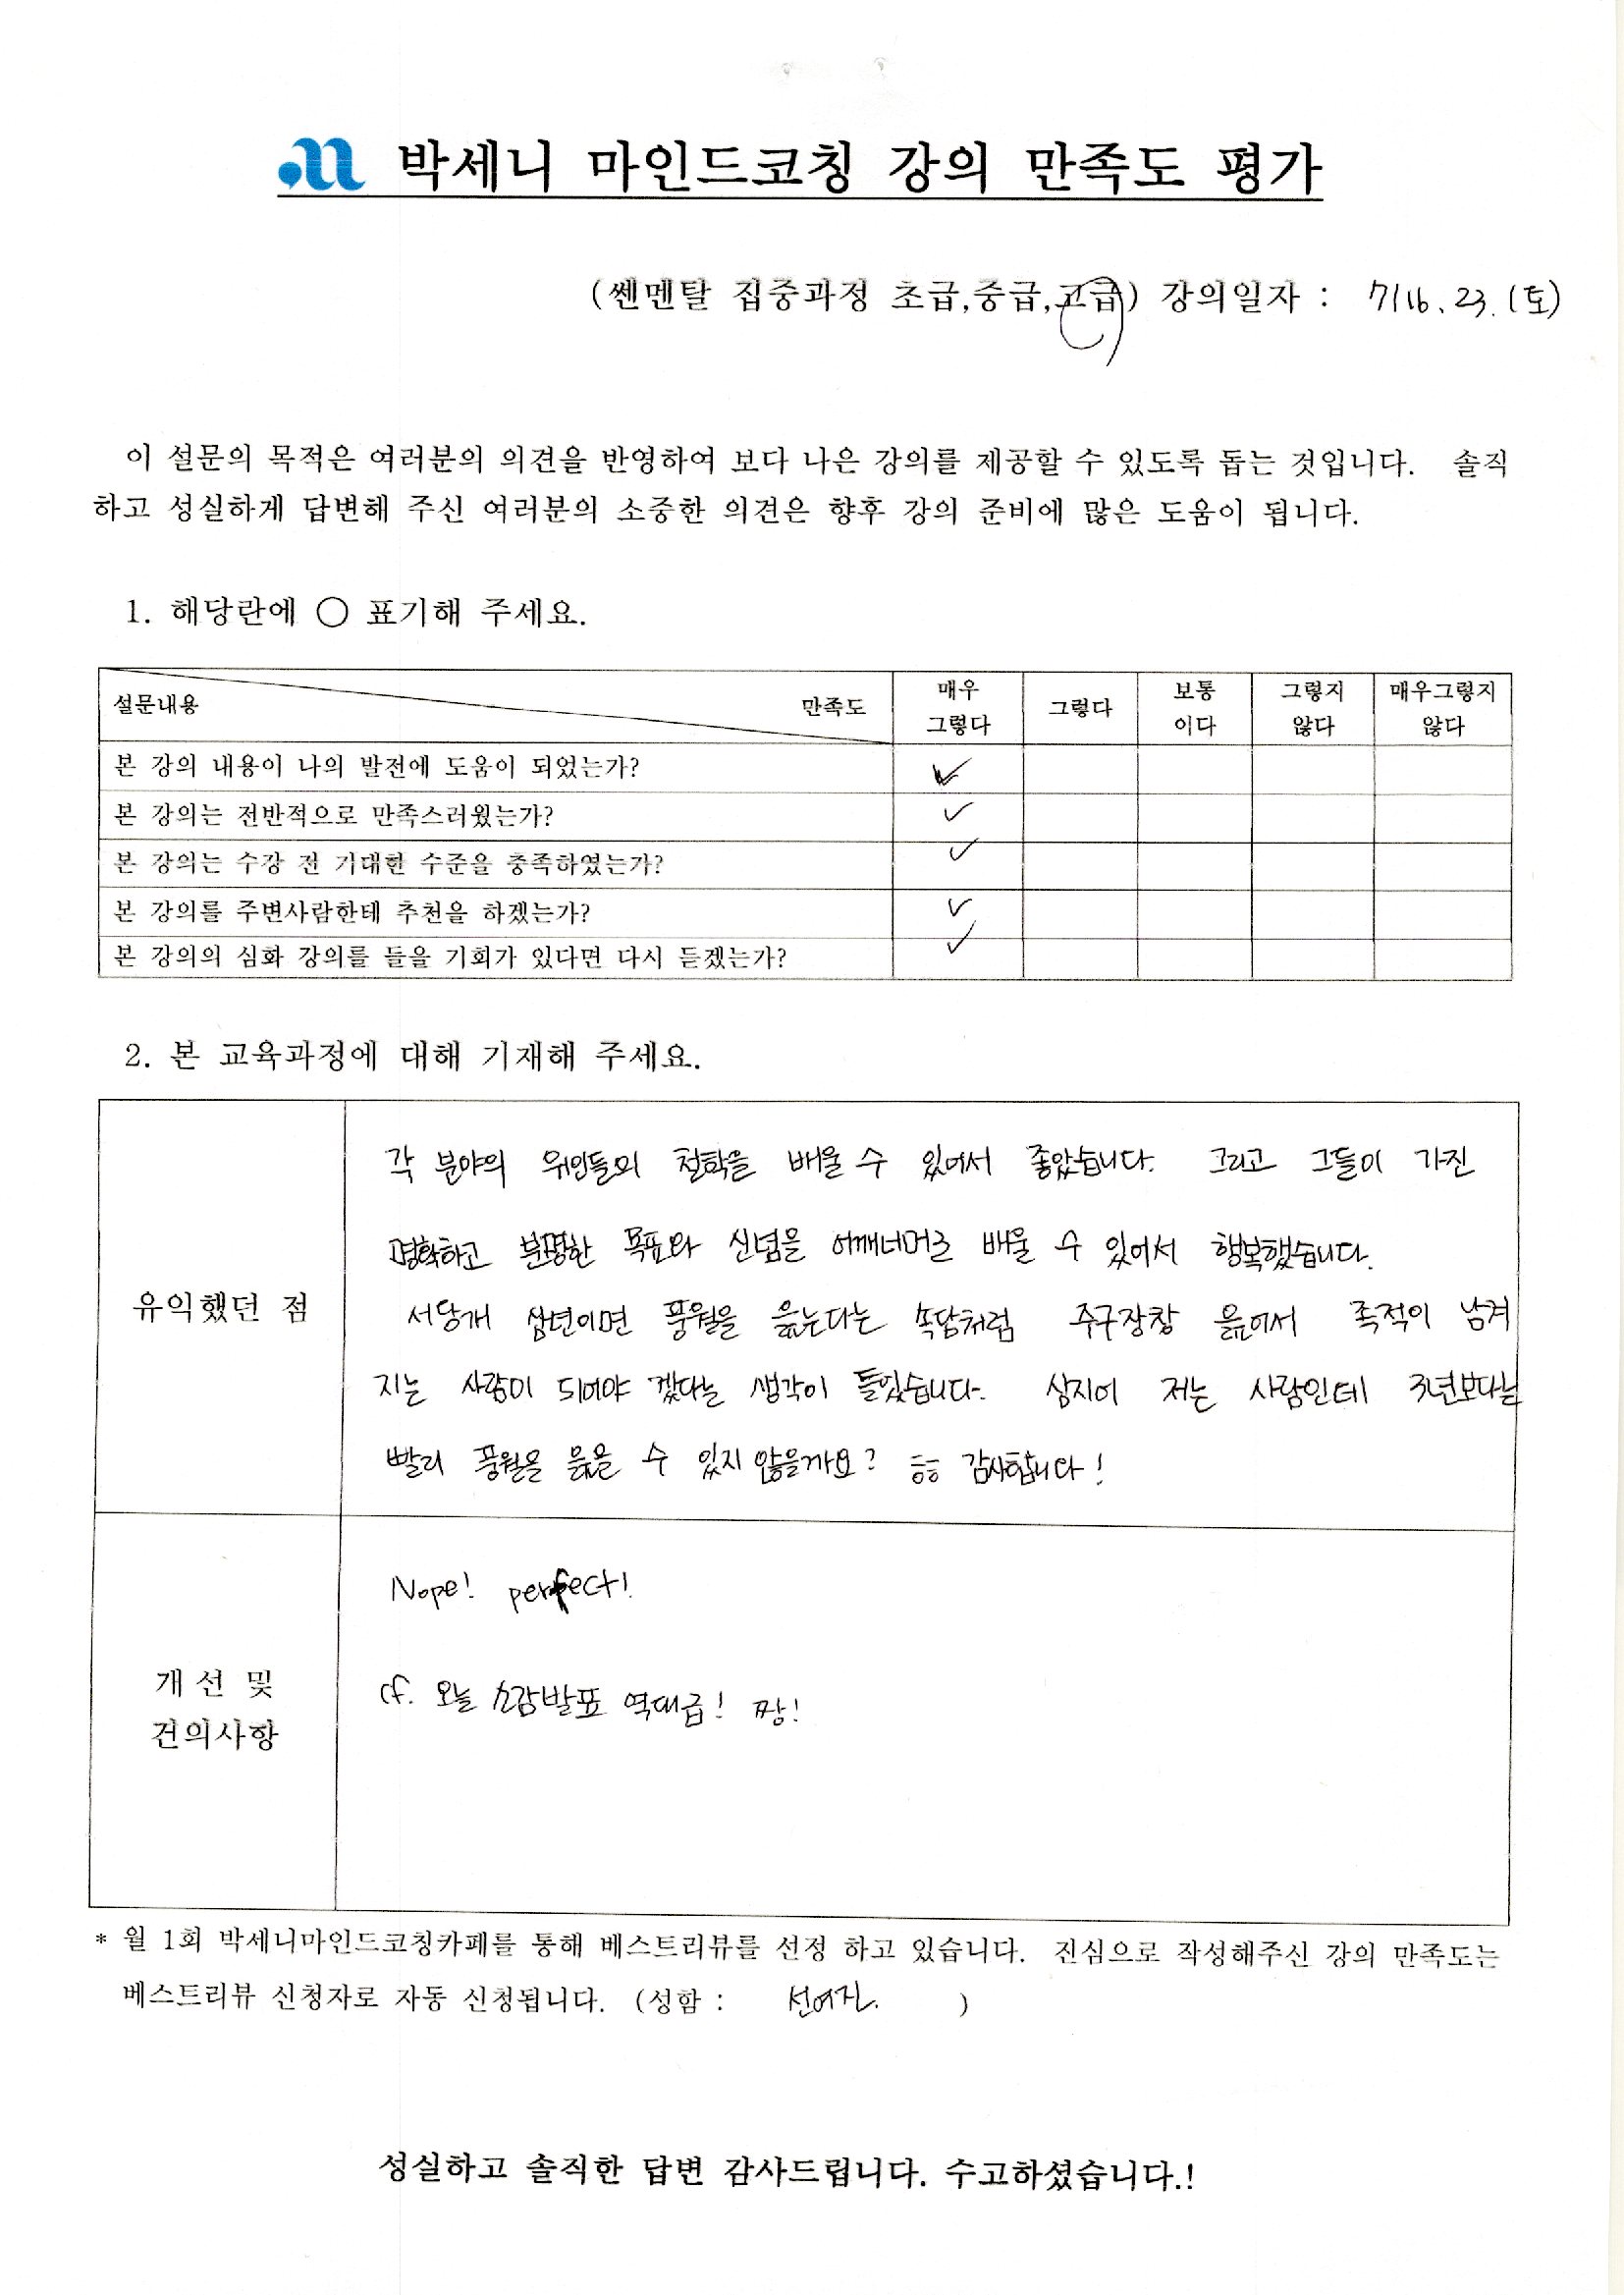 박세니 마인드코칭 강의 만족도 평가
(쎈멘탈 집중과정 초급,중급,고급) 강의일자 : 7/16. 23. (토)
이 설문의 목적은 여러분의 의견을 반영하여 보다 나은 강의를 제공할 수 있도록 돕는 것입니다. 솔직
하고 성실하게 답변해 주신 여러분의 소중한 의견은 향후 강의 준비에 많은 도움이 됩니다.
1. 해당란에 ○ 표기해 주세요.
설문내용 만족도 매우 그렇다 그렇다 보통 이다 그렇지 않다 매우그렇지 않다
본 강의 내용이 나의 발전에 도움이 되었는가? ✓
본 강의는 전반적으로 만족스러웠는가? ✓
본 강의는 수강 전 기대한 수준을 충족하였는가? ✓
본 강의를 주변사람한테 추천을 하겠는가? ✓
본 강의의 심화 강의를 들을 기회가 있다면 다시 듣겠는가? ✓
2. 본 교육과정에 대해 기재해 주세요.
유익했던 점
각 분야의 위인들의 철학을 배울 수 있어서 좋았습니다. 그리고 그들이 가진
명확하고 분명한 목표와 신념을 어깨너머로 배울 수 있어서 행복했습니다.
서당개 삼년이면 풍월을 읊는다는 속담처럼 주구장창 읊어서 족적이 남겨
지는 사람이 되어야 겠다는 생각이 들었습니다. 심지어 저는 사람인데 3년보다는
빨리 풍월을 읊을 수 있지 않을까요? ㅎㅎ 감사합니다!
개선 및
건의사항
Nope! perfect!
cf. 오늘 소감발표 역대급! 짱!
* 월 1회 박세니마인드코칭카페를 통해 베스트리뷰를 선정 하고 있습니다. 진심으로 작성해주신 강의 만족도는
베스트리뷰 신청자로 자동 신청됩니다. (성함 : 선여진. )
성실하고 솔직한 답변 감사드립니다. 수고하셨습니다.!